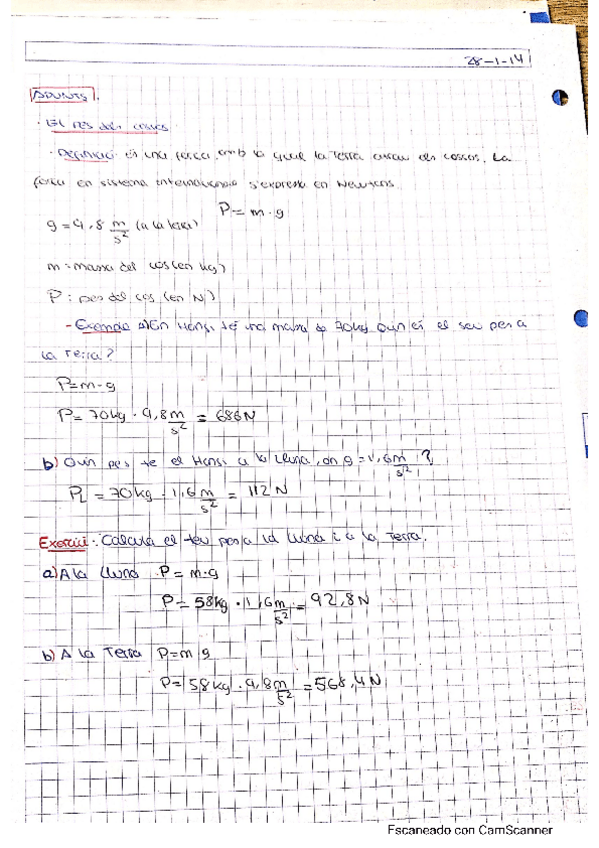 28-1-14
APUNTS.
· EL PES dels cossos.
· Definició és una força amb la qual la Terra atrau els cossos. La
força en sistema internacional s'expressa en Newtons.
P = m · g
g = 9,8 m/s² (a la terra)
m = massa del cos (en kg)
P : pes del cos (en N)
- Exemple En Hansi té una massa de 70kg Quin és el seu pes a
la Terra?
P = m · g
P = 70kg · 9,8 m/s² = 686N
b) Quin pes te el Hansi a la Lluna, on g = 1,6 m/s² ?
PL = 70kg · 1,6 m/s² = 112 N
Exercici : Calcula el teu pes a la lluna i a la Terra.
a) A la Lluna P = m·g
P = 58kg · 1,6 m/s² = 92,8N
b) A la Terra P = m g
P = 58kg · 9,8 m/s² = 568,4N
Escaneado con CamScanner